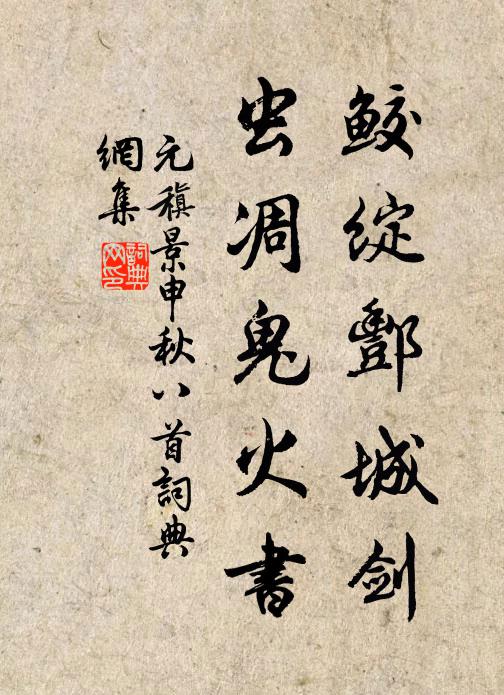 鮫綻酆城剑
虫凋鬼火書
元稹景申秋八首詞典
網集
詞典
网印